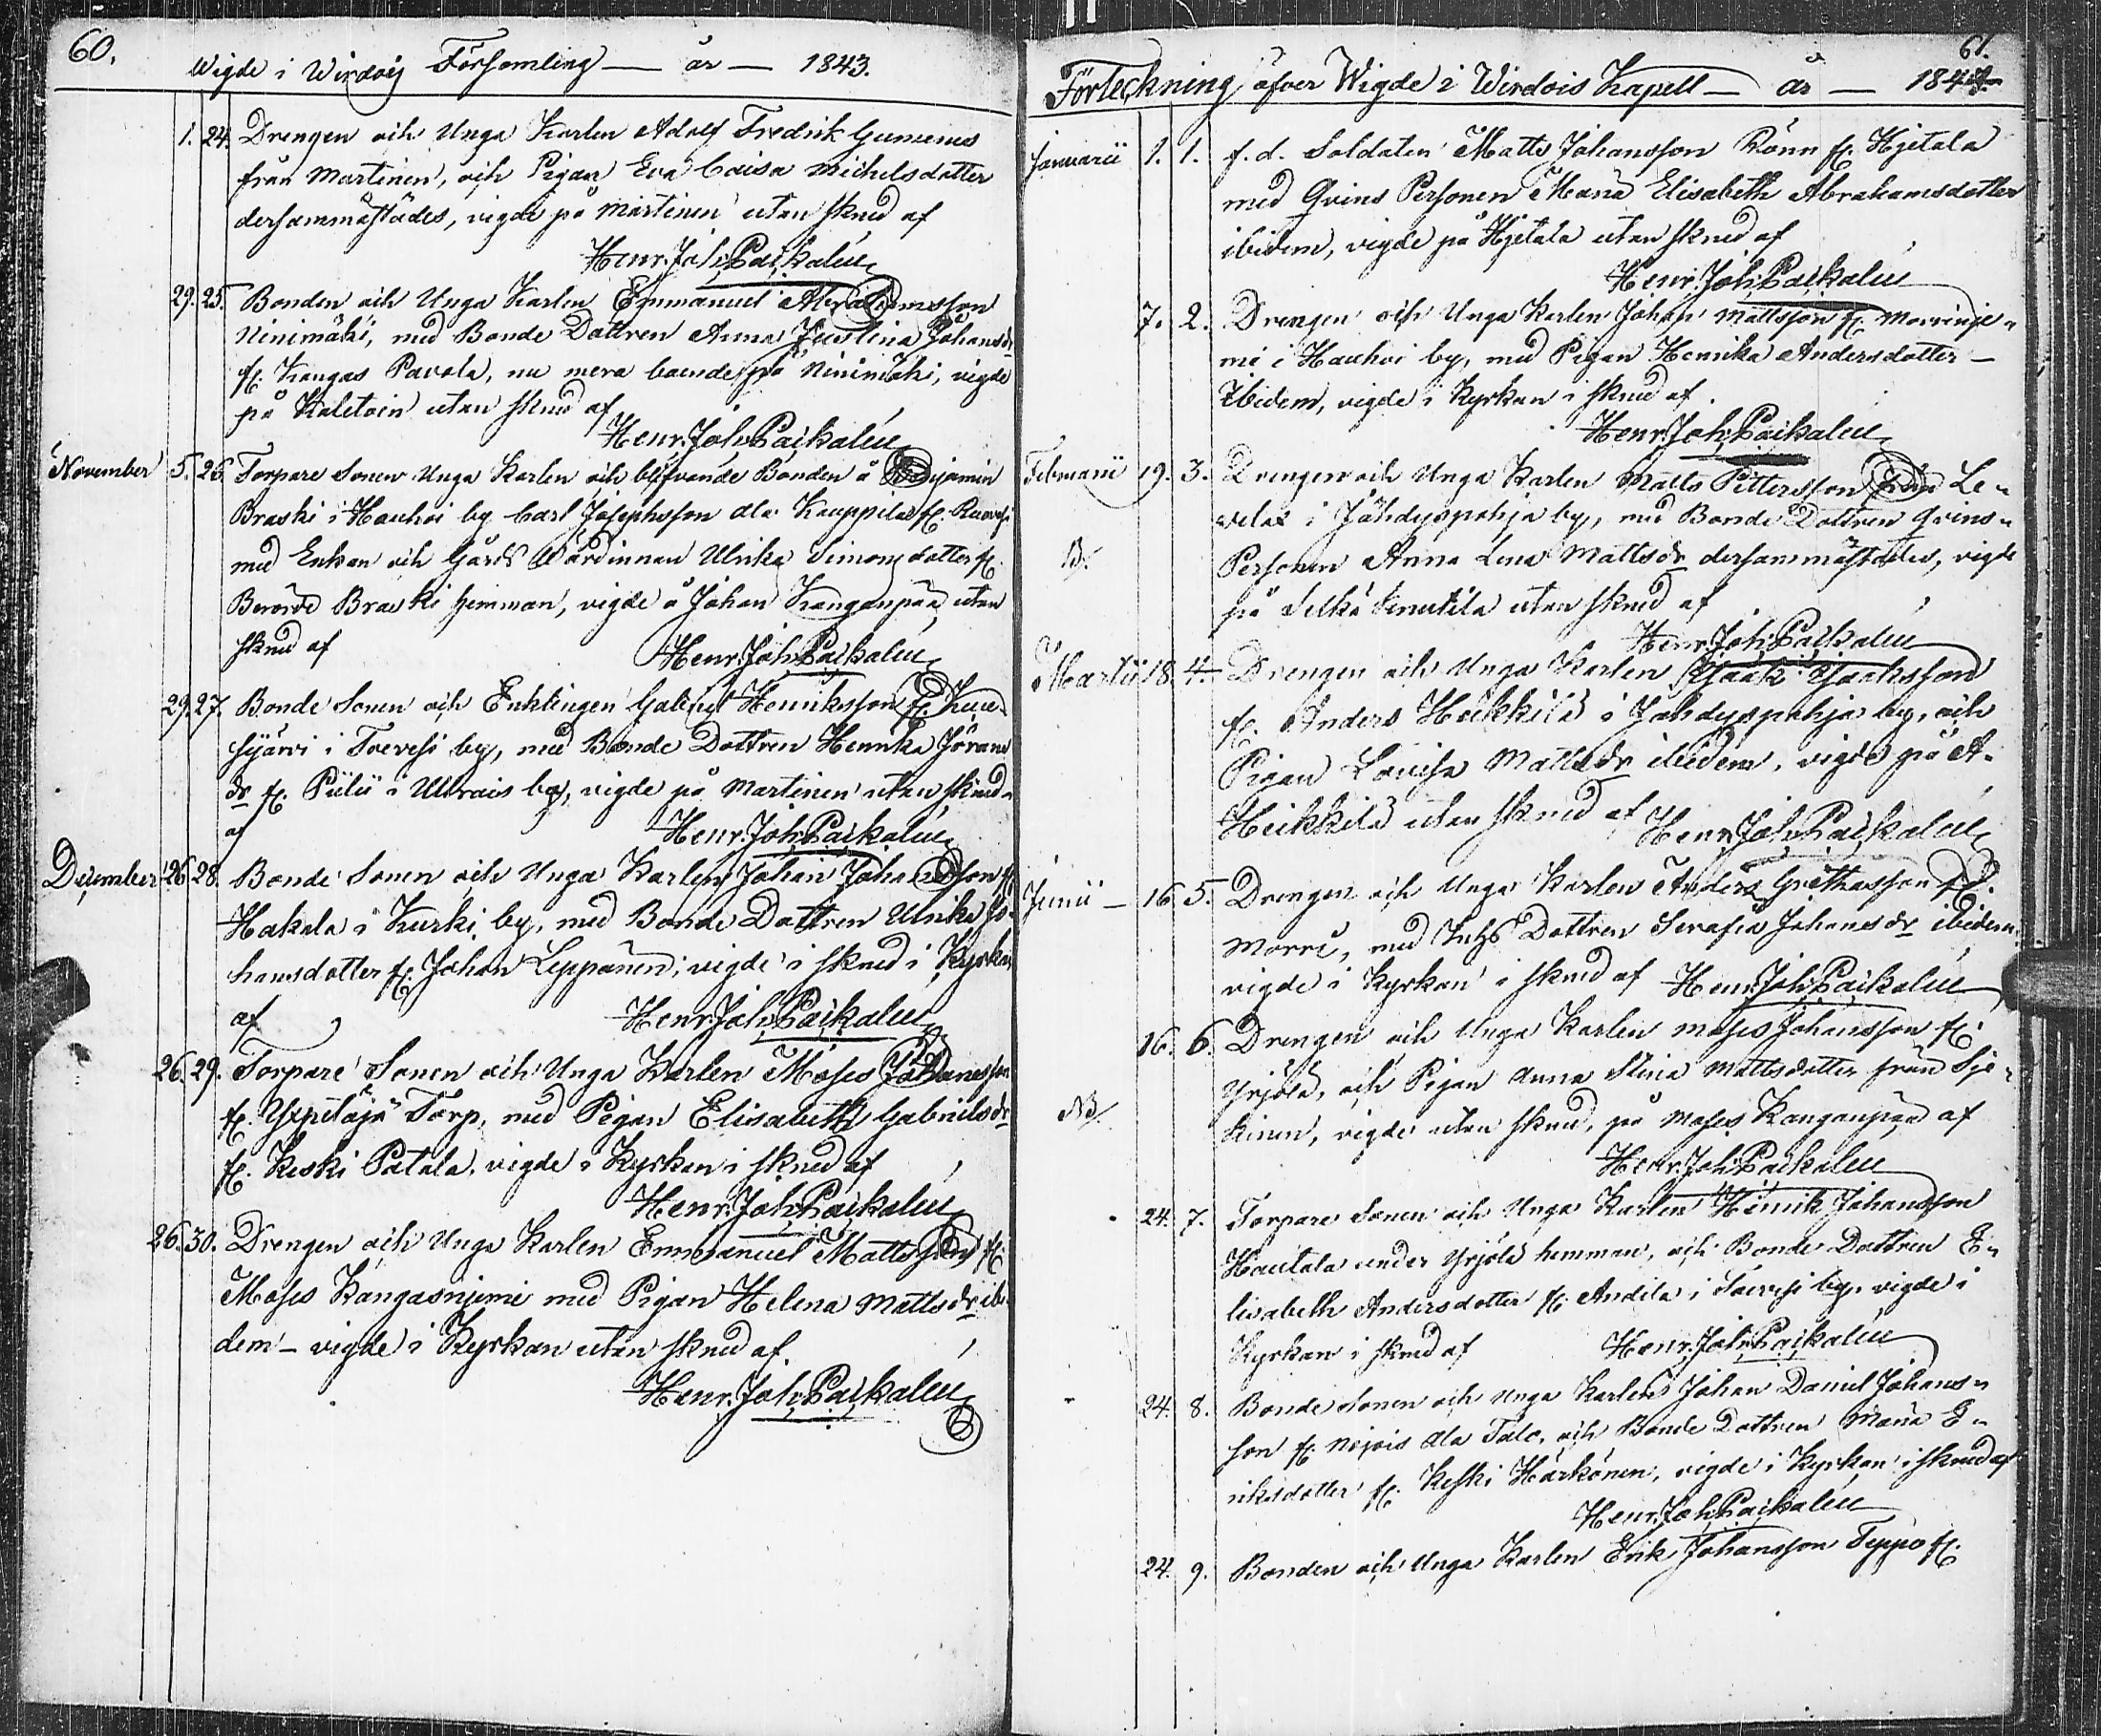 60.
Wigde i Wirdois Församling — år — 1843.
1. 24. Drengen och Unga Karlen Adolf Fredrik Gumerus
från Martinen, och Pigan Eva Caisa Michelsdotter
dersammastädes, vigde på Martinen utan skrud af
Henr. Joh. Paikalén
29. 25. Bonden och Unga Karlen Emmanuel Abrahamsson
Ninimäki, med Bonde Dottren Anna Justina Johansdr
fr. Kangas Pavola, nu mera boende på Ninimäki, vigde
på Kaletoin utan skrud af
Henr. Joh. Paikalén
November 5. 26. Torpare Sonen Unga Karlen och blifvande Bonden å Benjamin
Braski i Hauhoi by Carl Josephsson ala Kauppila fr. Ruovesi
med Enkan och Gårds Wärdinnan Ulrika Simonsdotter fr.
Berörde Braski hemman, vigde å Johan Kanganpää, utan
skrud af
Henr. Joh. Paikalén
29. 27. Bonde Sonen och Enklingen Gabriel Henriksson fr. Kuu-
sijärvi i Toevesi by, med Bonde Dottren Henrika Jörans
dr fr. Püliü i Ulvrais by, vigde på Martinen utan skrud
af
Henr. Joh. Paikalén
December 26. 28. Bonde Sonen och Unga Karlen Johan Johansson fr.
Hakala i Kurki by, med Bonde Dottren Ulrika Jo-
hansdotter fr. Johan Leppänen; vigde i skrud i Kyrkan
af
Henr. Joh. Paikalén
26. 29. Torpare Sonen och Unga Karlen Moses Johansson
fr. Yxpetäjä Torp, med Pigan Elisabeth Gabrielsdr
fr. Keski Patala, vigde i Kyrkan i skrud af
Henr. Joh. Paikalén
26. 30. Drengen och Unga Karlen Emmanuel Mattsson fr.
Moses Kangasnjemi med Pigan Helena Mattsdr ibi-
dem — vigde i Kyrkan utan skrud af
Henr. Joh. Paikalén
61.
Förteckning öfver Wigde i Wirdois Kapell — år — 1844.
Januarii 1. 1. f. d. Soldaten Matts Johansson Rönn fr. Hjetala
med Qvins Personen Maria Elisabeth Abrahamsdotter
ibidem, vigde på Hjetala utan skrud af
Henr. Joh. Paikalén
7. 2. Drengen och Unga Karlen Johan Mattsson fr. Morrinje-
mi i Hauhoi by, med Pigan Henrika Andersdotter —
Ibidem, vigde i Kyrkan i skrud af.
Henr. Joh. Paikalén
Februarii 19. 3. Drengen och Unga Karlen Matts Pettersson från Le-
velax i Jähdyspohja by, med Bonde Dottren Qvins-
B. Personen Anna Lena Mattsdr dersammastädes, vigde
på Silkä Knutila utan skrud af
Henr. Joh. Paikalén
Martii 18. 4. Drengen och Unga Karlen Isaak Isaaksson
fr. Anders Heikkilä i Jähdyspohja by, och
Pigan Lovisa Mattsdr ibidem, vigde på A.
Heikkilä utan skrud af Henr. Joh. Paikalén
Junii — 16. 5. Drengen och Unga Karlen Anders Grethasson fr.
Morri, med Inhs Dottren Serafia Johansdr ibidem
vigde i Kyrkan i skrud af Henr. Joh. Paikalén
16. 6. Drengen och Unga Karlen Moses Johansson fr.
Yrjölä, och Pigan Anna Stina Mattsdotter från Sje-
NB. kinen, vigde utan skrud, på Moses Kanganpää af
Henr. Joh. Paikalén
24. 7. Torpare Sonen och Unga Karlen Henrik Johansson
Hautala under Yrjölä hemman, och Bonde Dottren E-
lisabeth Andersdotter fr. Andila i Toevesi by, vigde i
Kyrkan i skrud af Henr. Joh. Paikalén
24. 8. Bonde Sonen och Unga Karlen Johan Daniel Johans-
son fr. Nojois ala Talo, och Bonde Dottren Maria E-
riksdotter fr. Keski Härkönen, vigde i Kyrkan i skrud af
Henr. Joh. Paikalén
24. 9. Bonden och Unga Karlen Erik Johansson Teppo fr.